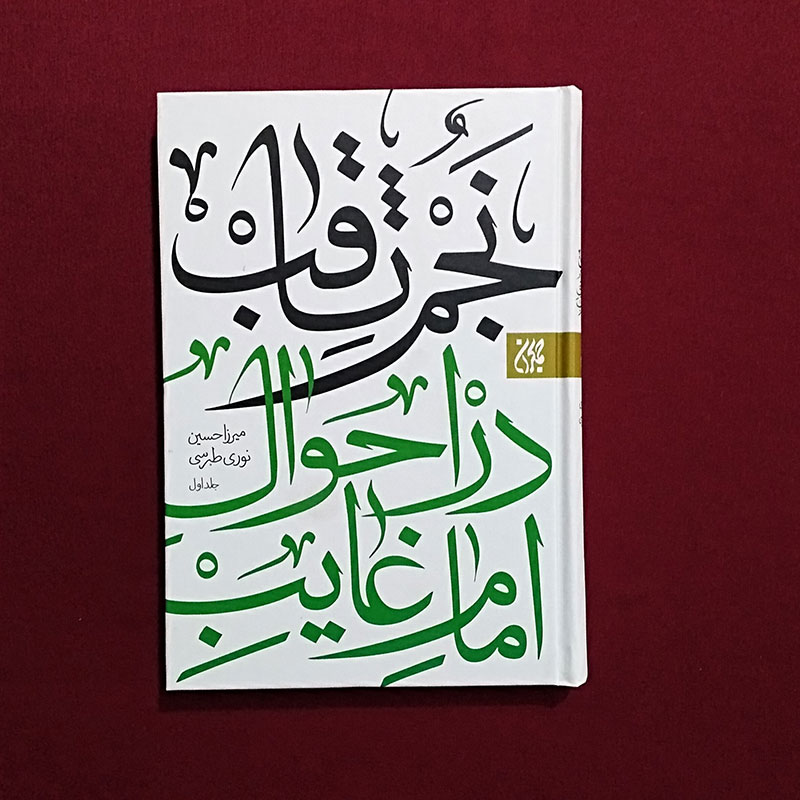 نَجْمُ ثاقِبْ
دَرْ احوالِ
امامِ غایِبْ
میرزا حسین
نوری طبرسی
جلد اول
جمکران